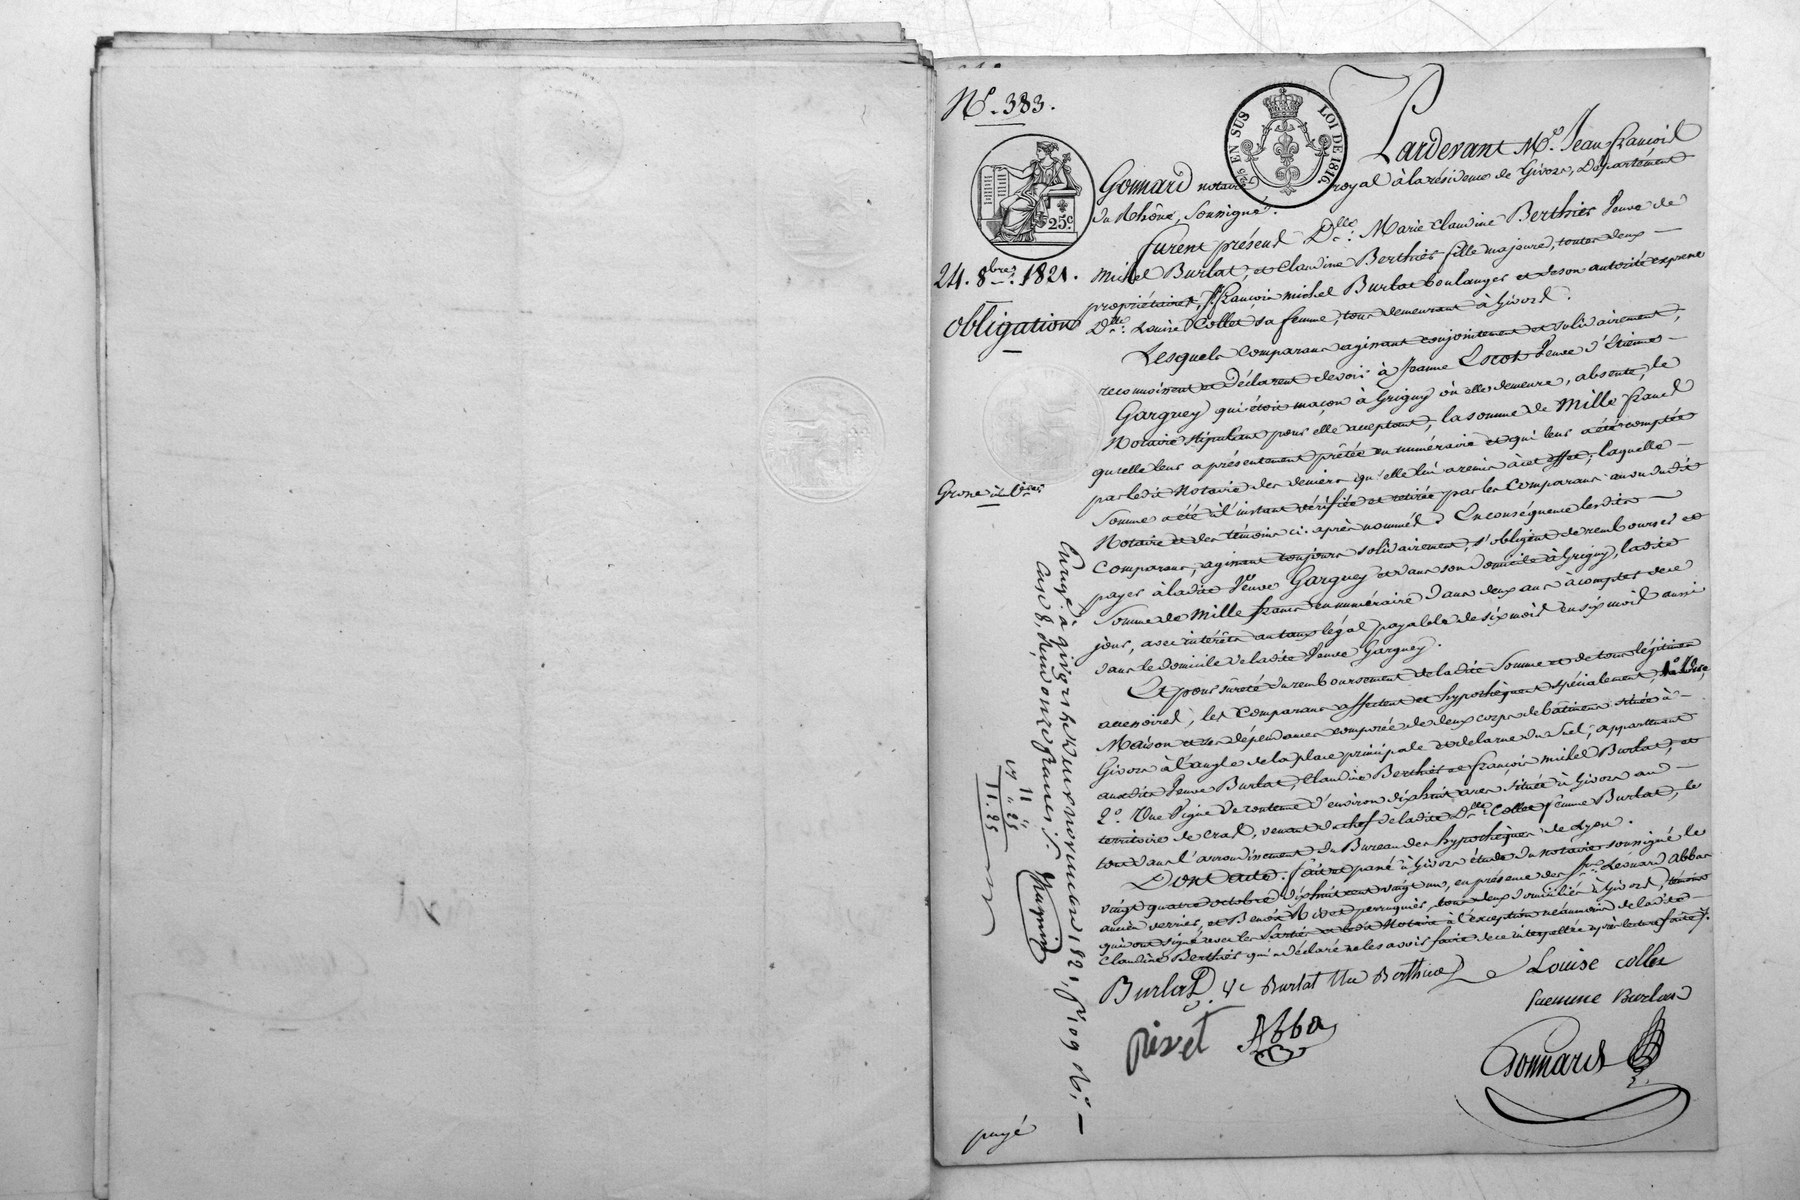 N.º 383.
25 EN SUS
LOI DE 1816
25 c
24. 8bre. 1821.
Obligation
Grosse
Pardevant Me. Jean françois
Gonnard notaire royal à la résidence de Givors, Département
du Rhône, Soussigné.
furent présens Dlle: Marie Claudine Berthier Veuve de
Michel Burlat, et Claudine Berthier fille majeure, toutes deux
propriétaires, Sr. françois michel Burlat boulanger et de son autorité expresse
Dlle: Louise Collet sa femme, tous demeurant à Givors.
Lesquels Comparans agissant conjointement et solidairement,
reconnoissent et déclarent devoir à Jeanne Escot Veuve d'Etienne
Garguey qui étoit maçon à Grigny où elle demeure, absente, le
Notaire stipulant pour elle acceptant, la somme de Mille francs
qu'elle leur a présentement prêtée en numéraire et qui leur a été comptée
par ledit Notaire des deniers qu'elle lui a remis à cet effet, laquelle
Somme a été à l'instant vérifiée et retirée par les Comparans au vu dudit
Notaire et des témoins ci-après nommés. En conséquence lesdits
Comparans, agissant toujours solidairement, s'obligent de rembourser et
payer à ladite Veuve Garguey et dans son domicile à Grigny, ladite
Somme de Mille francs en numéraire dans deux ans à compter de ce
jour, avec intérêts au taux légal payable de six mois en six mois aussi
dans le domicile de ladite Veuve Garguey.
Et pour sûreté du remboursement de ladite Somme et de tous légitimes
accessoires, les Comparans affectent et hypothèquent spécialement, 1.º Une
Maison et ses dépendances composée de deux corps de bâtimens située à
Givors à l'angle de la place principale et de la rue du Suel, appartenant
auxdites Veuve Burlat, Claudine Berthier et françois michel Burlat, et
2.º Une Vigne de contenue d'environ dix huit ares située à Givors au
territoire de Cras, venant du chef de ladite Dlle: Collet femme Burlat, le
tout dans l'arrondissement du Bureau des hypothèques de Lyon.
Dont acte. fait et passé à Givors étude du notaire soussigné le
vingt quatre octobre dix huit cent vingt un, en présence des Srs. Léonard Abba
ancien verrier, et Benoît Rivet perruquier, tous deux domiciliés à Givors, témoins
qui ont signé avec les parties et ledit Notaire à l'exception néanmoins de ladite
Claudine Berthier qui a déclaré ne les avoir faire de ce interpellée après lecture faite.
Burlat Ve Burlat née Berthier Louise collet
faemme Burlat
Rivet Abba
Gonnard
Enregé. à givors le deux novembre 1821, fo. 109 Ro.
Case 8, reçu onze francs
11.25
payé